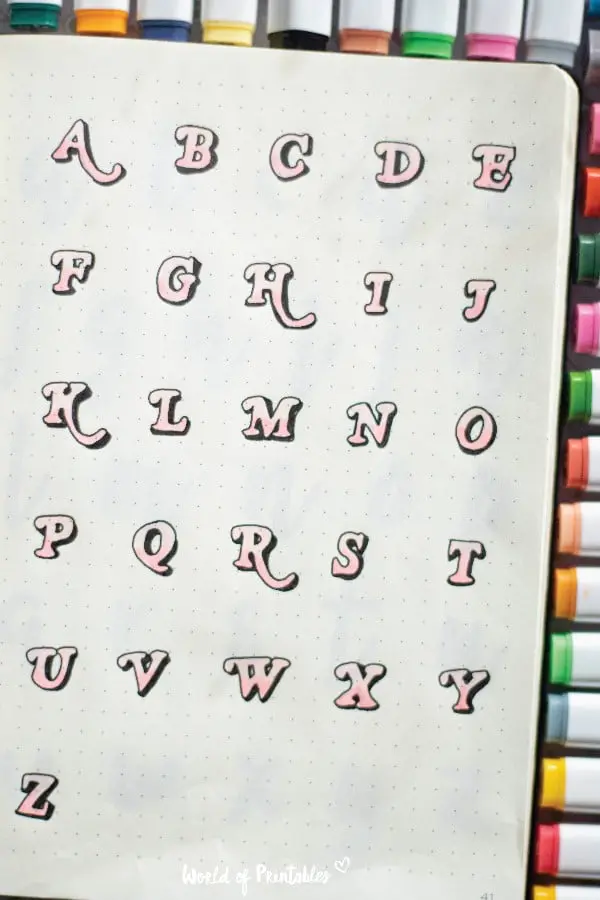 A B C D E
F G H I J
K L M N O
P Q R S T
U V W X Y
Z
World of Printables
41